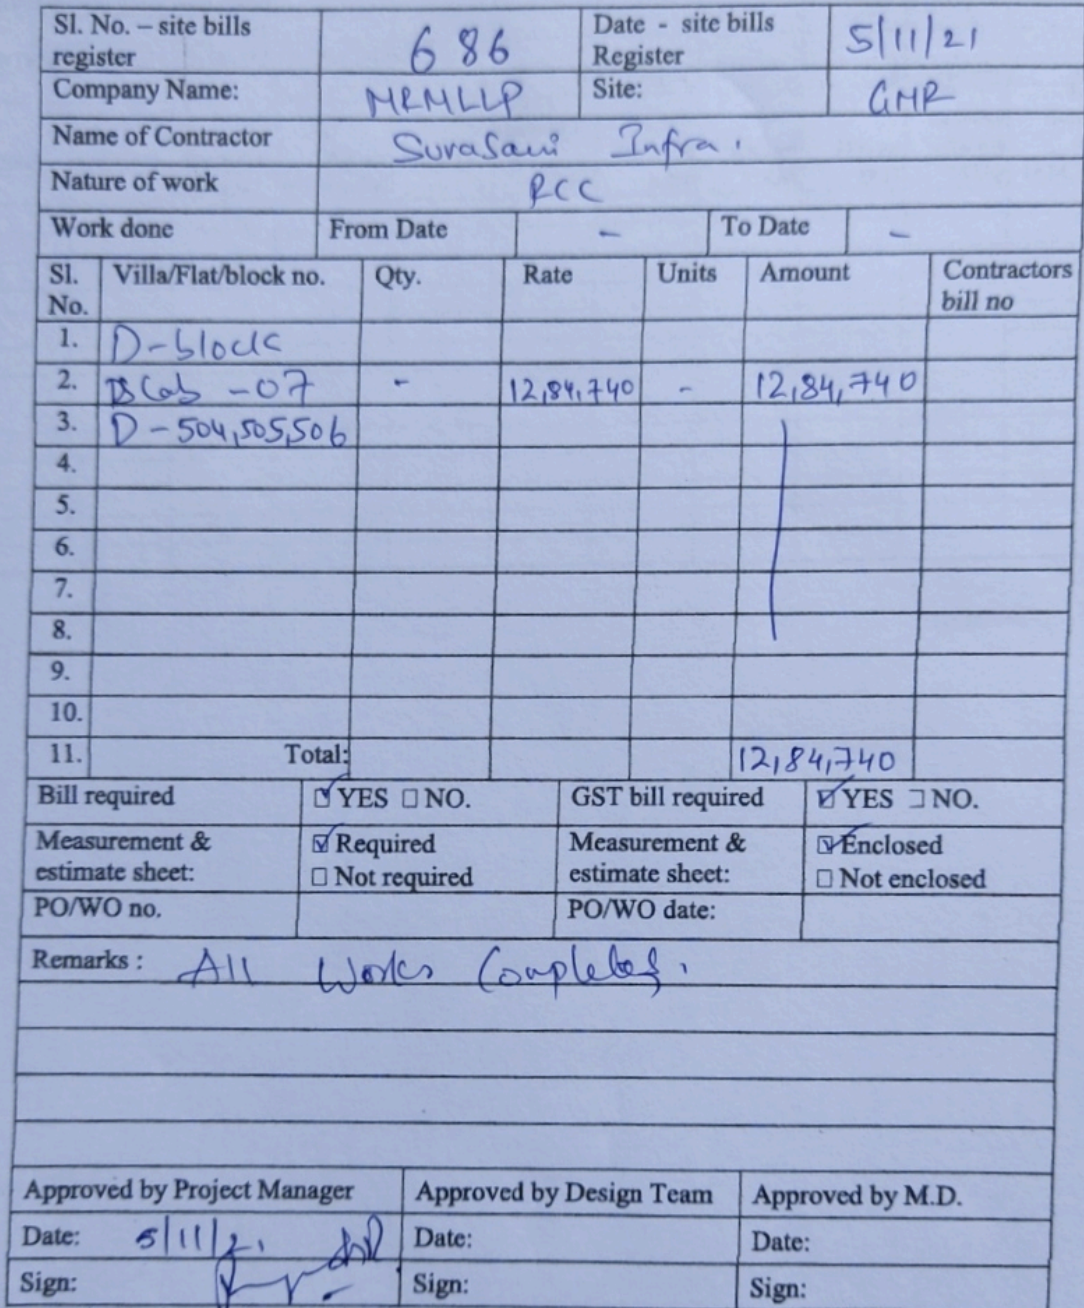 Sl. No. – site bills register 686 Date - site bills Register 5/11/21
Company Name: MRMLLP Site: GMR
Name of Contractor Surasani Infra.
Nature of work RCC
Work done From Date - To Date -
Sl. No. Villa/Flat/block no. Qty. Rate Units Amount Contractors bill no
1. D-block
2. Slab -07 - 12,84,740 - 12,84,740
3. D-504,505,506
4.
5.
6.
7.
8.
9.
10.
11. Total: 12,84,740
Bill required ☑ YES ☐ NO. GST bill required ☑ YES ☐ NO.
Measurement & estimate sheet: ☑ Required ☐ Not required Measurement & estimate sheet: ☑ Enclosed ☐ Not enclosed
PO/WO no. PO/WO date:
Remarks : All Works Completed.
Approved by Project Manager Approved by Design Team Approved by M.D.
Date: 5/11/21 Date: Date:
Sign: Sign: Sign: